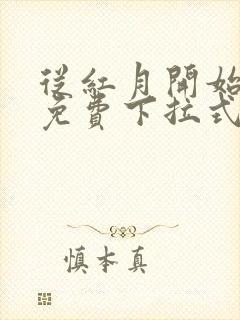 從紅月開始
免費下拉式
慎本真